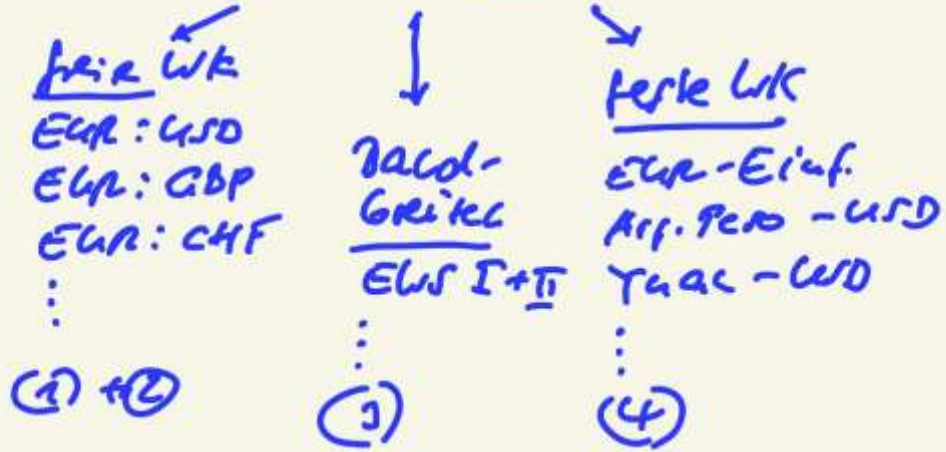 freie WK
EUR : USD
EUR : GBP
EUR : CHF
⋮
(1) + (2)
Band-
breiten
EWS I + II
⋮
(3)
feste WK
EUR - Einf.
Arg. Peso - USD
Yuan - USD
⋮
(4)